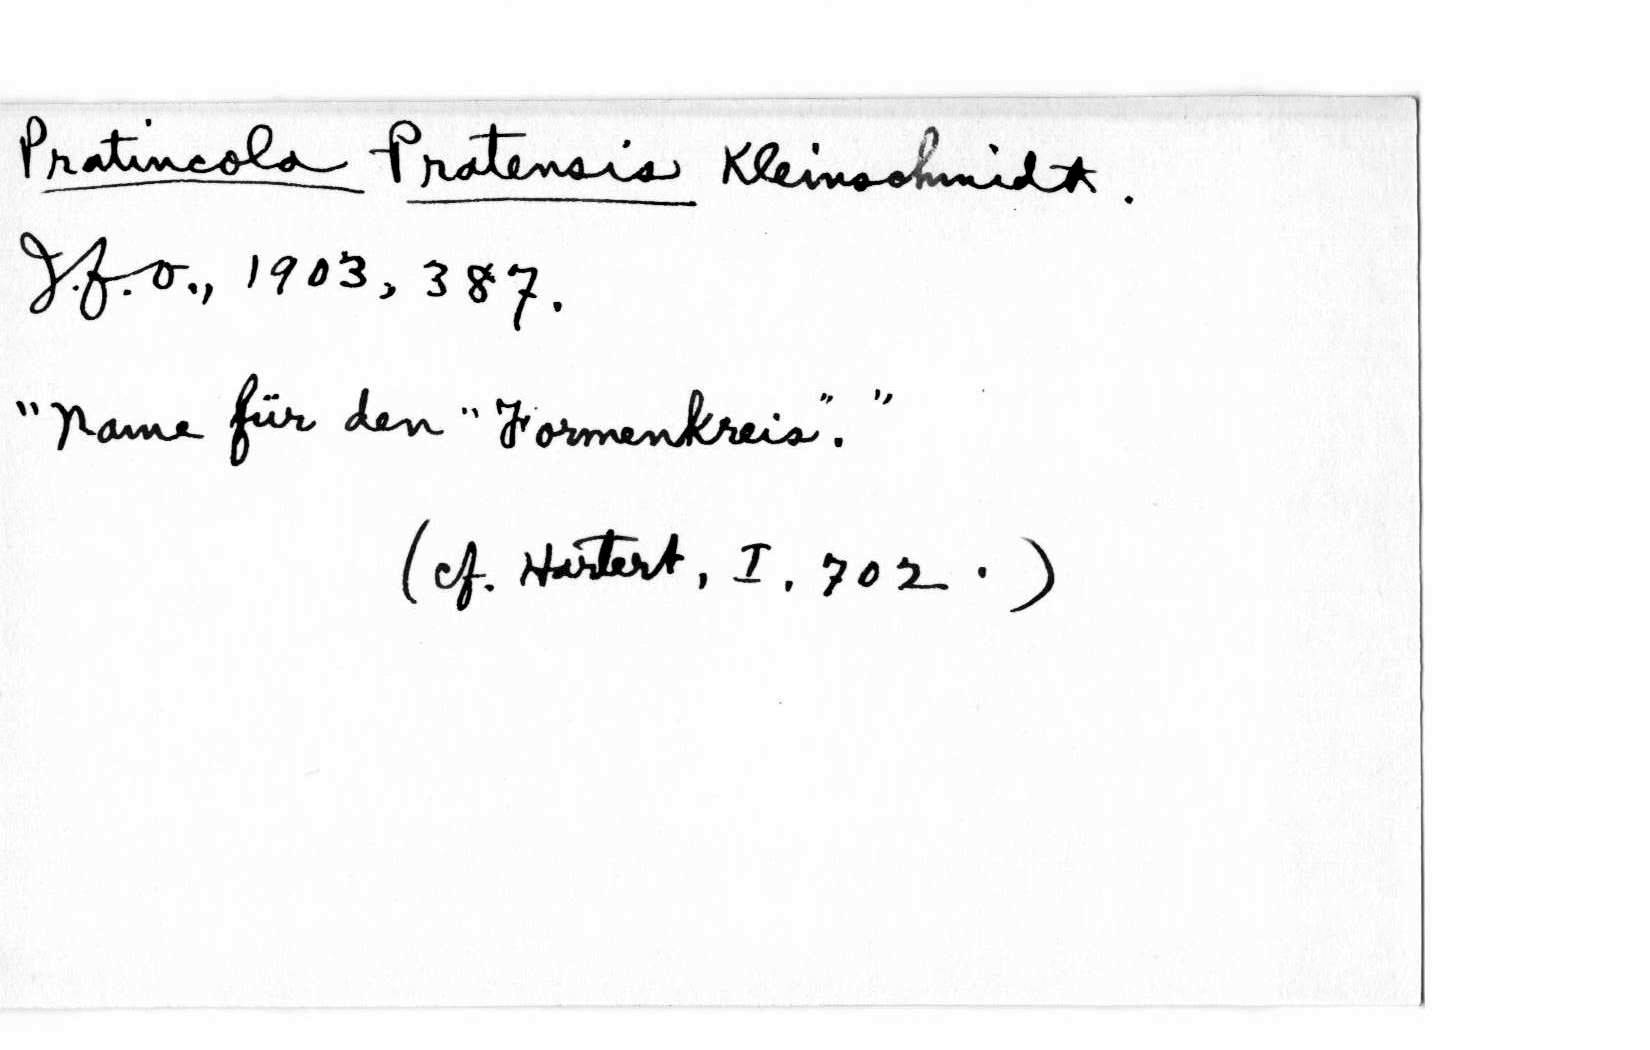 Pratincola Pratensis Kleinschmidt.
J.f.O., 1903, 387.
"Name für den "Formenkreis"."
(cf. Hartert, I. 702.)